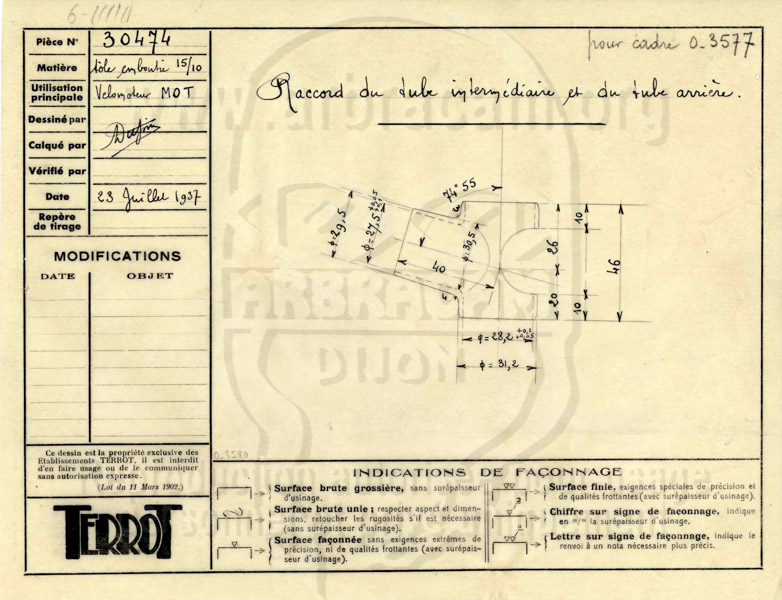 pour cadre 0.3577
Pièce N° 30474
Matière tôle emboutie 15/10
Utilisation principale Velomoteur MOT
Dessiné par
Calqué par
Vérifié par
Date 23 Juillet 1937
Repère de tirage
MODIFICATIONS
DATE OBJET
Raccord du tube intermédiaire et du tube arrière.
74° 55
φ=29,5
φ=27,5
φ=30,5
40
10
26
46
20
10
φ=28,2 +0,1 +0,05
φ=31,2
Ce dessin est la propriété exclusive des
Etablissements TERROT, il est interdit
d'en faire usage ou de le communiquer
sans autorisation expresse.
(Loi du 11 Mars 1902.)
TERROT
0.3580
INDICATIONS DE FAÇONNAGE
Surface brute grossière, sans surépaisseur
d'usinage.
Surface brute unie ; respecter aspect et dimen-
sions, retoucher les rugosités s'il est nécessaire
(sans surépaisseur d'usinage).
Surface façonnée sans exigences extrêmes de
précision, ni de qualités frottantes (avec surépais-
seur d'usinage).
Surface finie, exigences spéciales de précision et
de qualités frottantes (avec surépaisseur d'usinage).
Chiffre sur signe de faconnage, indique
en m/m la surépaisseur d'usinage.
Lettre sur signe de façonnage, indique le
renvoi à un nota nécessaire plus précis.
ARBRACAM
DIJON